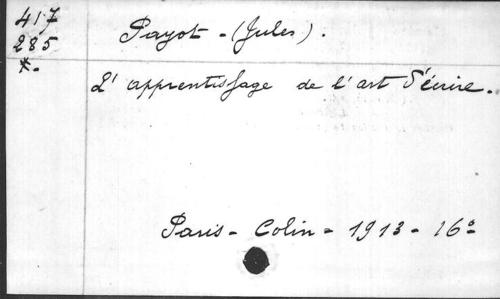 417
285
*.
Payot - (Jules).
L'apprentissage de l'art d'écrire.
Paris - Colin - 1913 - 16°